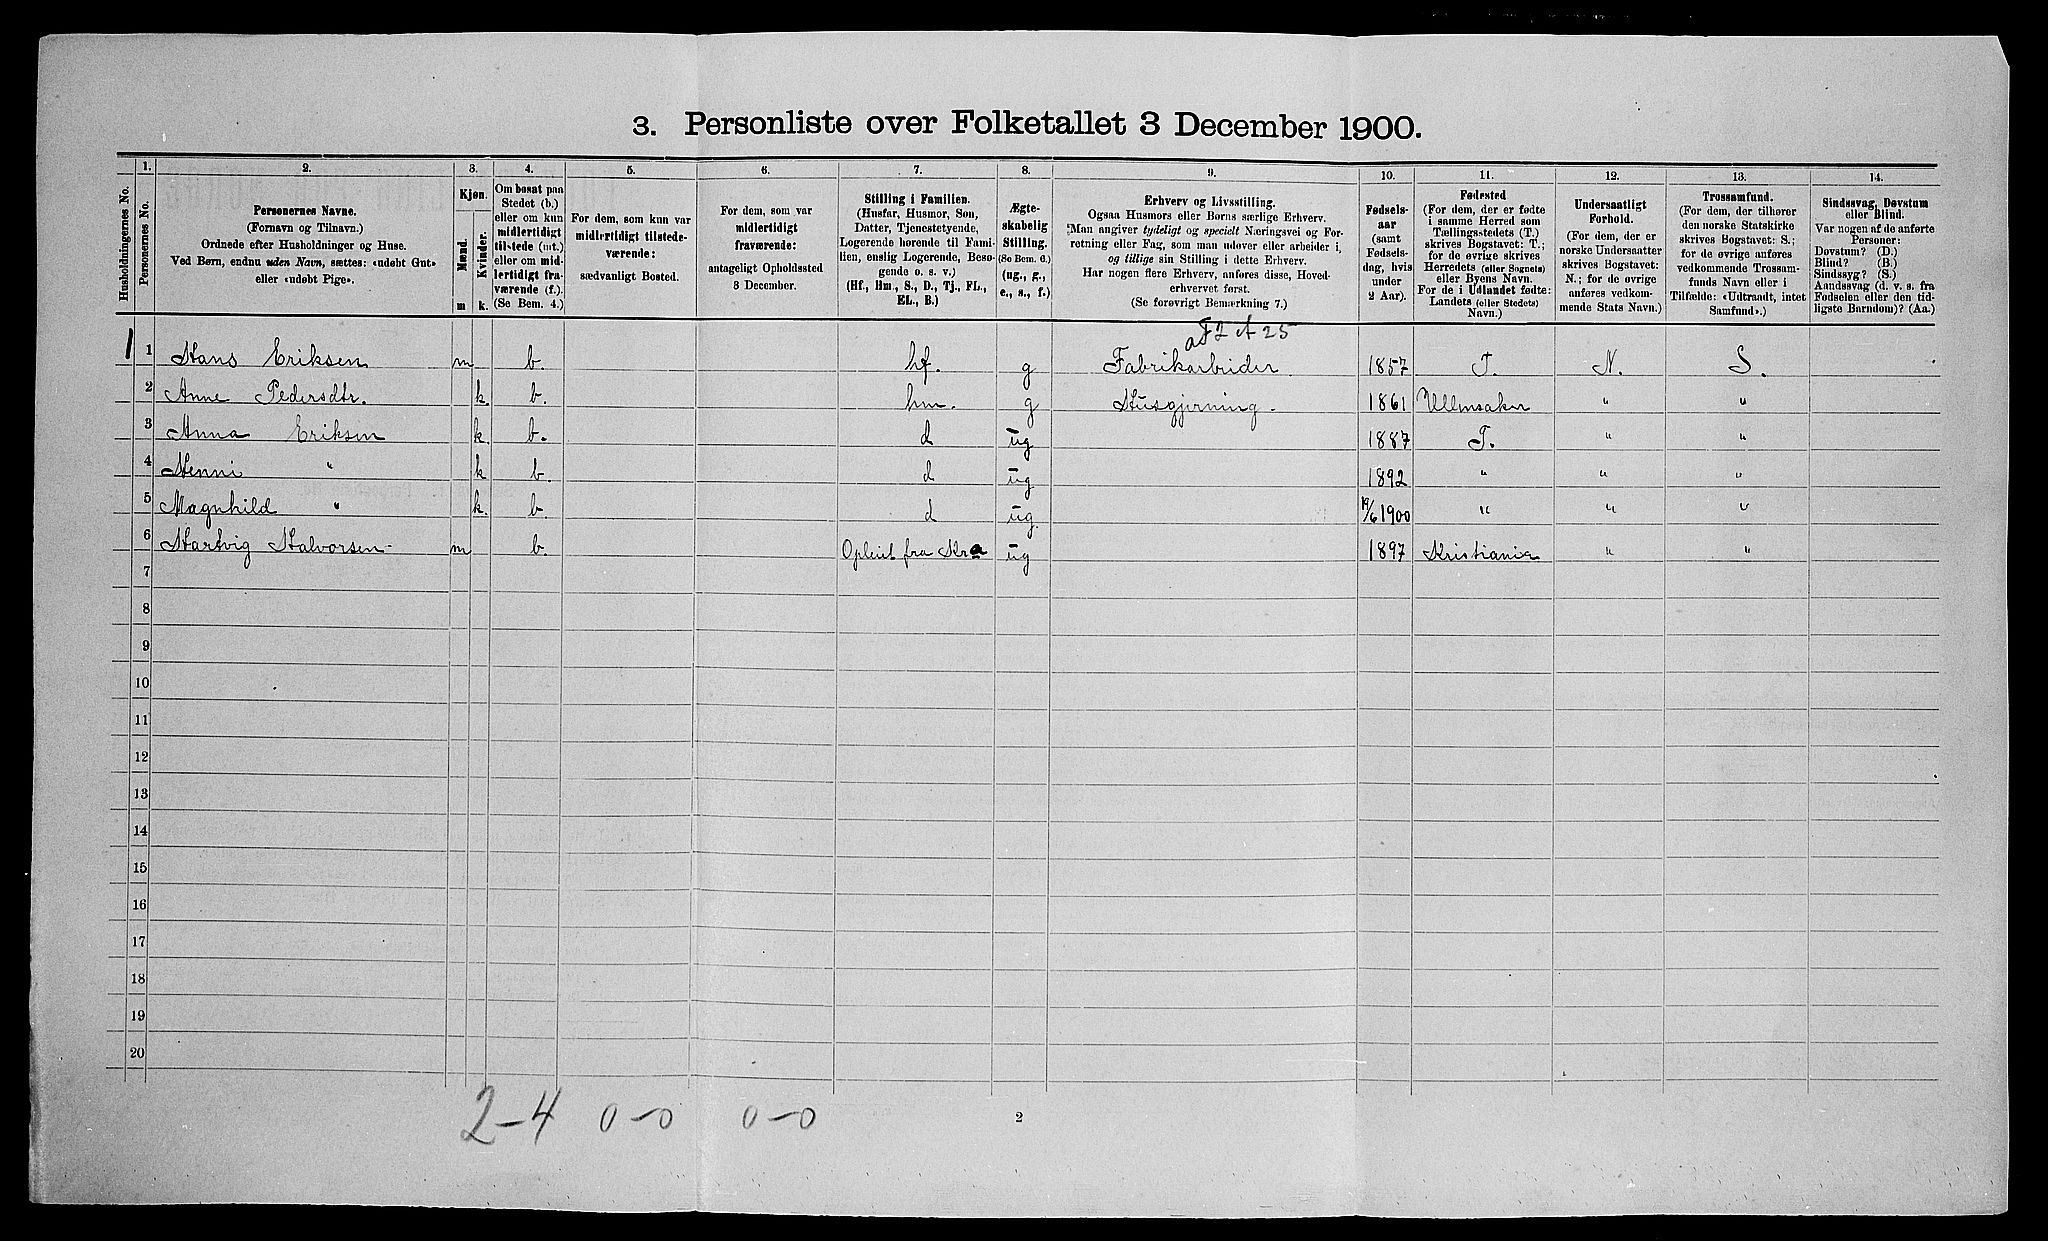 3. Personliste over Folketallet 3 December 1900.
1. 2. 3. 4. 5. 6. 7. 8. 9. 10. 11. 12. 13. 14.
Husholdningernes No.
Personernes No.
Personernes Navne.
(Fornavn og Tilnavn.)
Ordnede efter Husholdninger og Huse.
Ved Børn, endnu uden Navn, sættes: «udøbt Gut»
eller «udøbt Pige».
Kjøn.
Mænd.
Kvinder.
m k.
Om bosat paa
Stedet (b.)
eller om kun
midlertidigt
tilstede (mt.)
eller om mid-
lertidigt fra-
værende (f.)
(Se Bem. 4.)
For dem, som kun var
midlertidigt tilstede-
værende:
sædvanligt Bosted.
For dem, som var
midlertidigt
fraværende:
antageligt Opholdssted
3 December.
Stilling i Familien.
(Husfar, Husmor, Søn,
Datter, Tjenestetyende,
Logerende hørende til Fami-
lien, enslig Logerende, Besø-
gende o. s. v.)
(Hf., Hm., S., D., Tj., FL.,
EL., B.)
Ægte-
skabelig
Stilling.
(Se Bem. 6.)
(ug., g.,
e., s., f.)
Erhverv og Livsstilling.
Ogsaa Husmors eller Børns særlige Erhverv.
Man angiver tydeligt og specielt Næringsvei og For-
retning eller Fag, som man udøver eller arbeider i,
og tillige sin Stilling i dette Erhverv.
Har nogen flere Erhverv, anføres disse, Hoved-
erhvervet først.
(Se forøvrigt Bemærkning 7.)
Fødsels-
aar
(samt
Fødsels-
dag, hvis
under
2 Aar).
Fødested
(For dem, der er fødte
i samme Herred som
Tællingsstedets (T.)
skrives Bogstavet: T.;
for de øvrige skrives
Herredets (eller Sognets)
eller Byens Navn.
For de i Udlandet fødte:
Landets (eller Stedets)
Navn.)
Undersaatligt
Forhold.
(For dem, der er
norske Undersaatter
skrives Bogstavet:
N.; for de øvrige
anføres vedkom-
mende Stats Navn.)
Trossamfund.
(For dem, der tilhører
den norske Statskirke
skrives Bogstavet: S.;
for de øvrige anføres
vedkommende Trossam-
funds Navn eller i
Tilfælde: «Udtraadt, intet
Samfund».)
Sindssvag, Døvstum
eller Blind.
Var nogen af de anførte
Personer:
Døvstum? (D.)
Blind? (B.)
Sindssyg? (S.)
Aandssvag (d. v. s. fra
Fødselen eller den tid-
ligste Barndom)? (Aa.)
1 1 Hans Eriksen m b. hf. g Fabrikarbeider 1857 T. N. S.
2 Anne Pedersdtr. k b. hm. g Husgjerning. 1861 Ullensaker " "
3 Anna Eriksen k. b. d ug 1887 T. " "
4 Henni " k b. d ug 1892 " " "
5 Magnhild " k. b. d ug. 19/6 1900 " " "
6 Hartvig Halvorsen m b. fra Kra ug 1897 Kristiania " "
7
8
9
10
11
12
13
14
15
16
17
18
19
20
2-4 0-0 0-0 2